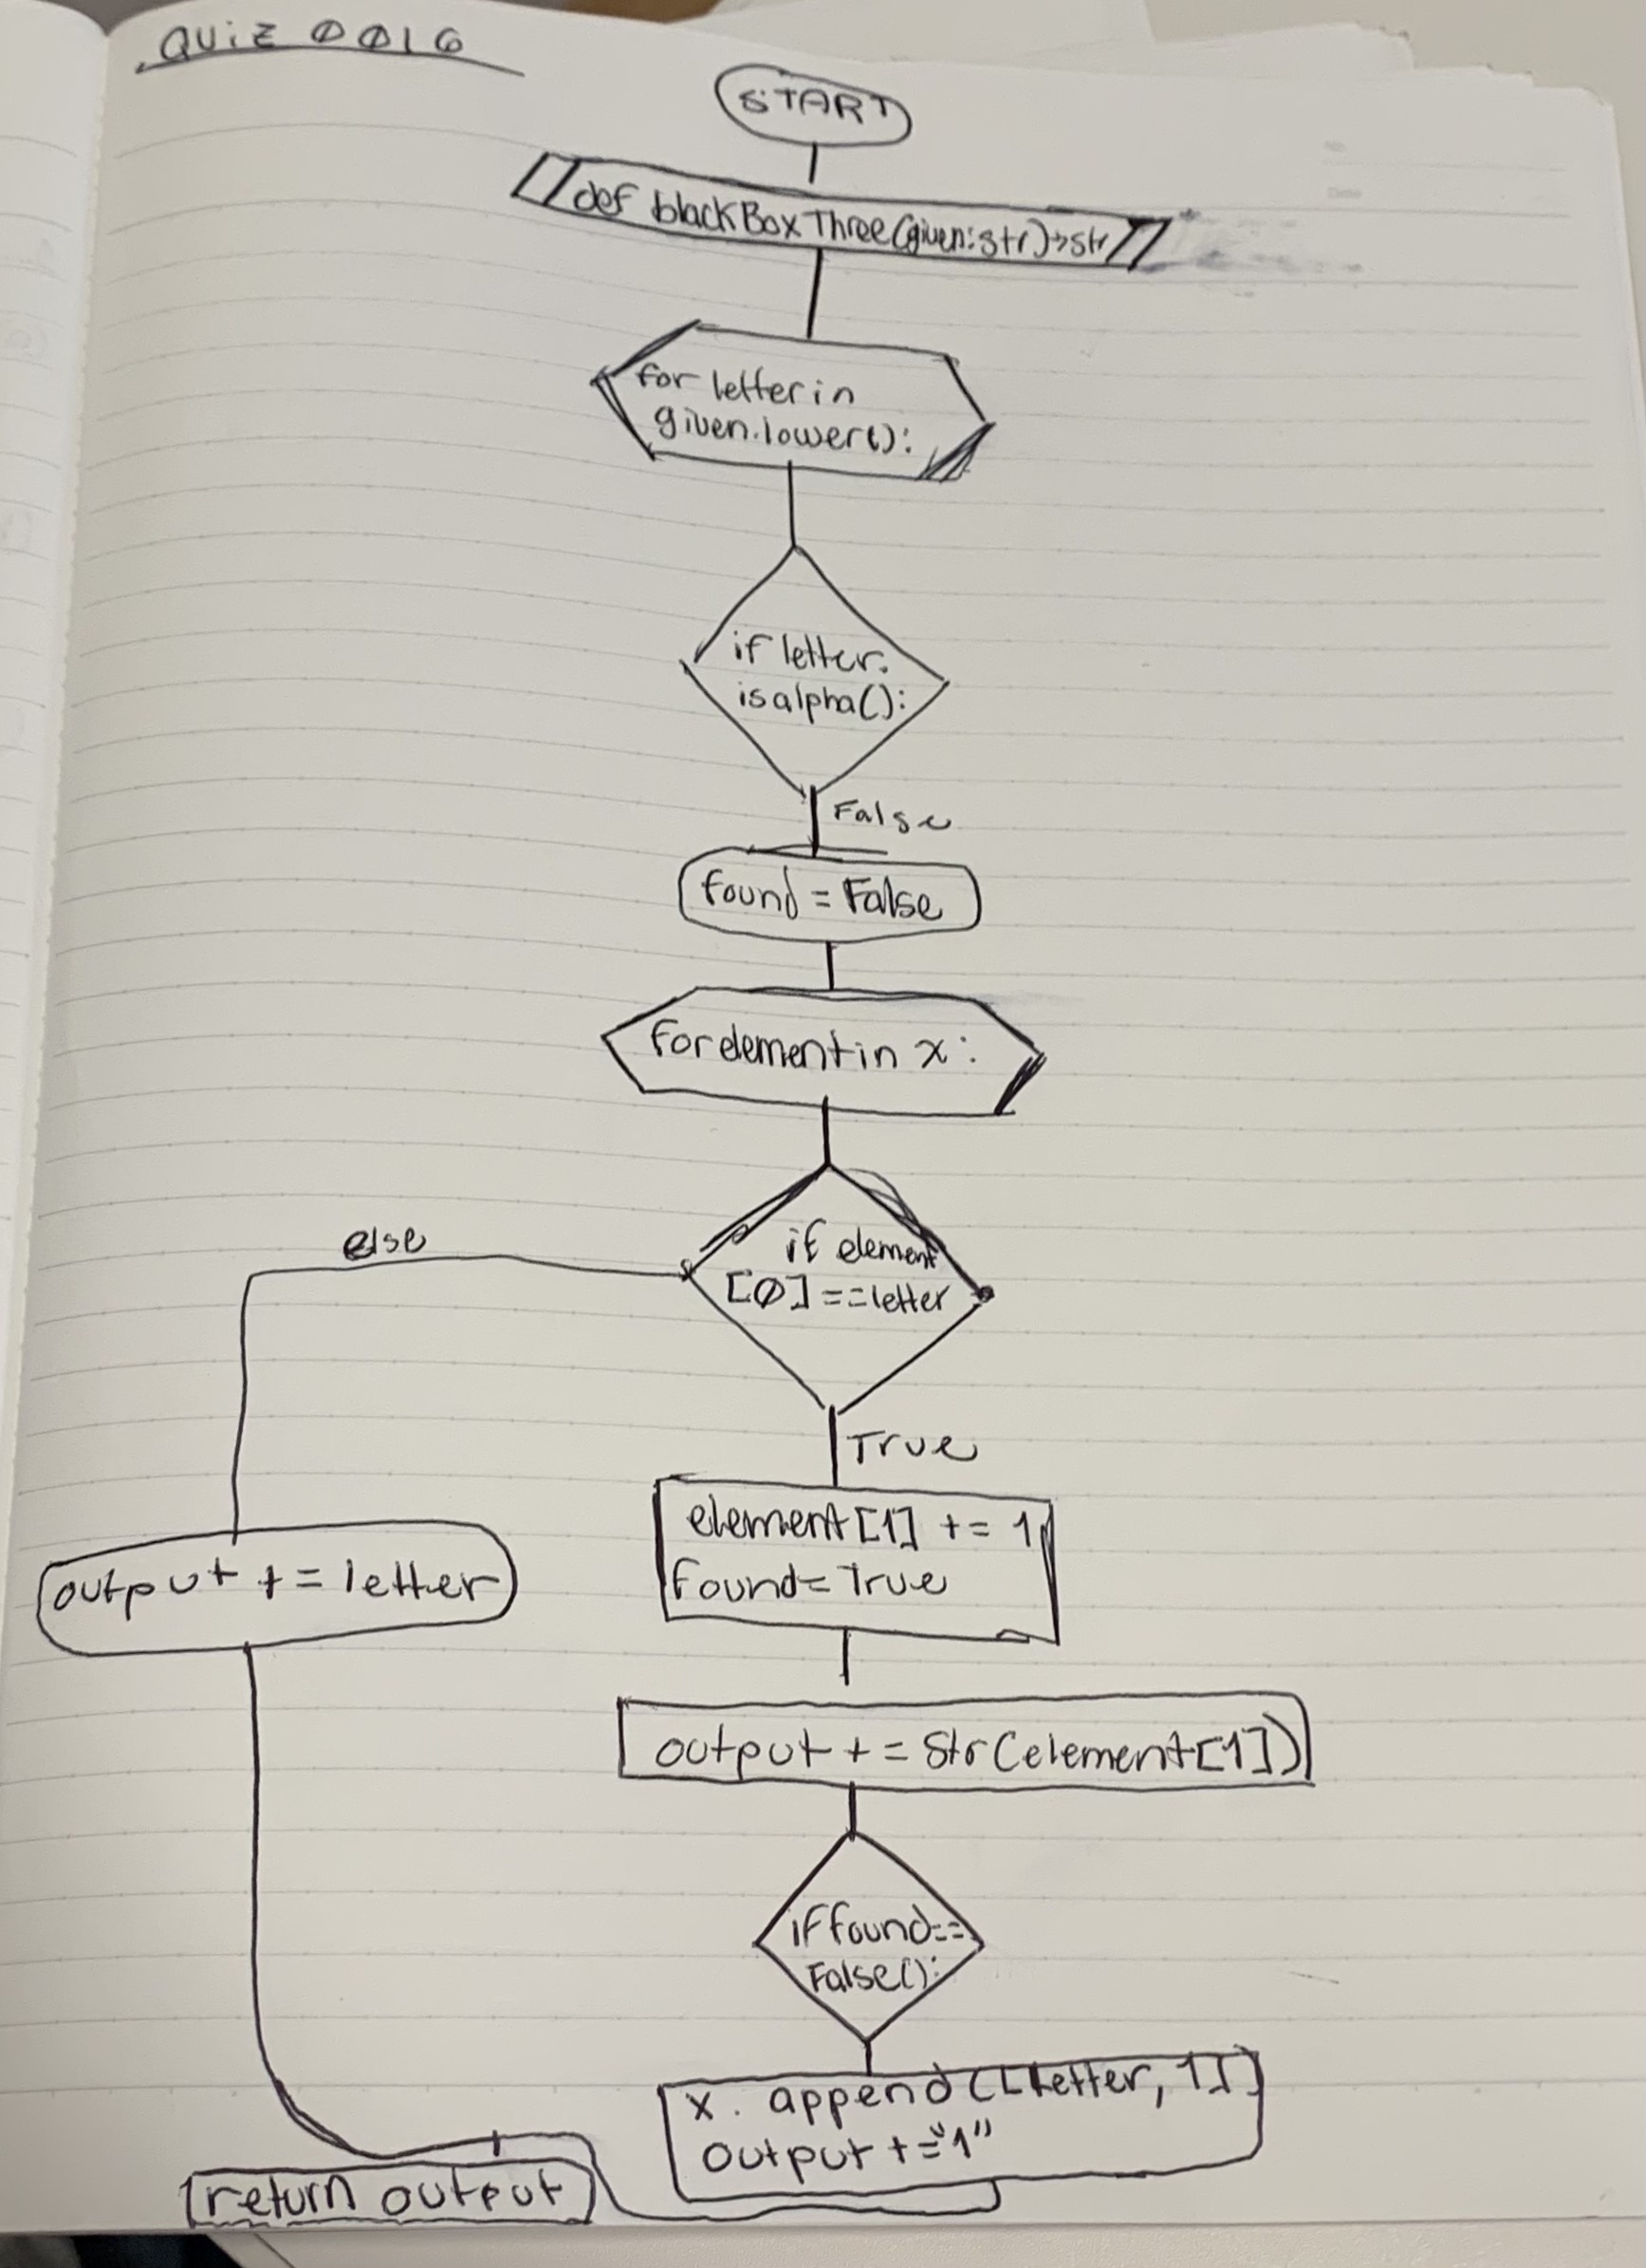 QUiZ 0016
START
def blackBoxThree(given:str)->str
for letter in
given.lower():
if letter.
isalpha():
False
found = False
for element in x:
if element
[0]==letter
else
True
element[1] += 1
found=True
output += letter
output += str(element[1])
if found==
False():
x.append([letter, 1])
output +="1"
return output